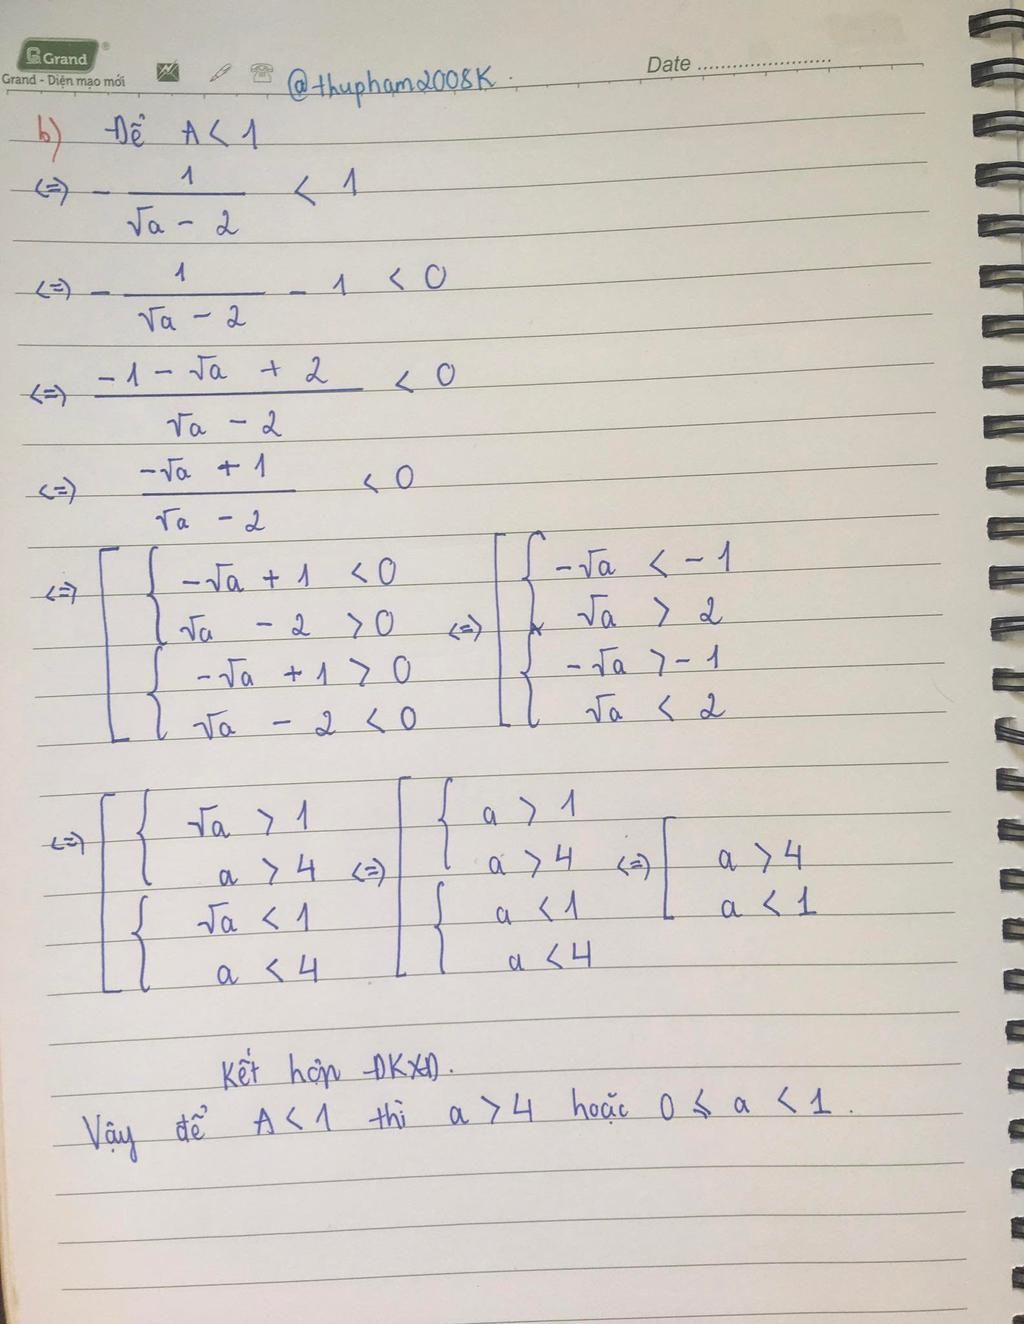 Grand
Grand - Diện mạo mới
@thupham2008K.
Date ........................
b) Để A < 1
<=> - 1/(√a - 2) < 1
<=> - 1/(√a - 2) - 1 < 0
<=> (-1 - √a + 2)/(√a - 2) < 0
<=> (-√a + 1)/(√a - 2) < 0
<=> [ { -√a + 1 < 0 <=> [ { -√a < -1
√a - 2 > 0 √a > 2
{ -√a + 1 > 0 { -√a > -1
√a - 2 < 0 √a < 2
<=> [ { √a > 1 <=> [ { a > 1 <=> [ a > 4
a > 4 a > 4 a < 1
{ √a < 1 { a < 1
a < 4 a < 4
Kết hợp ĐKXĐ.
Vậy để A < 1 thì a > 4 hoặc 0 ≤ a < 1.